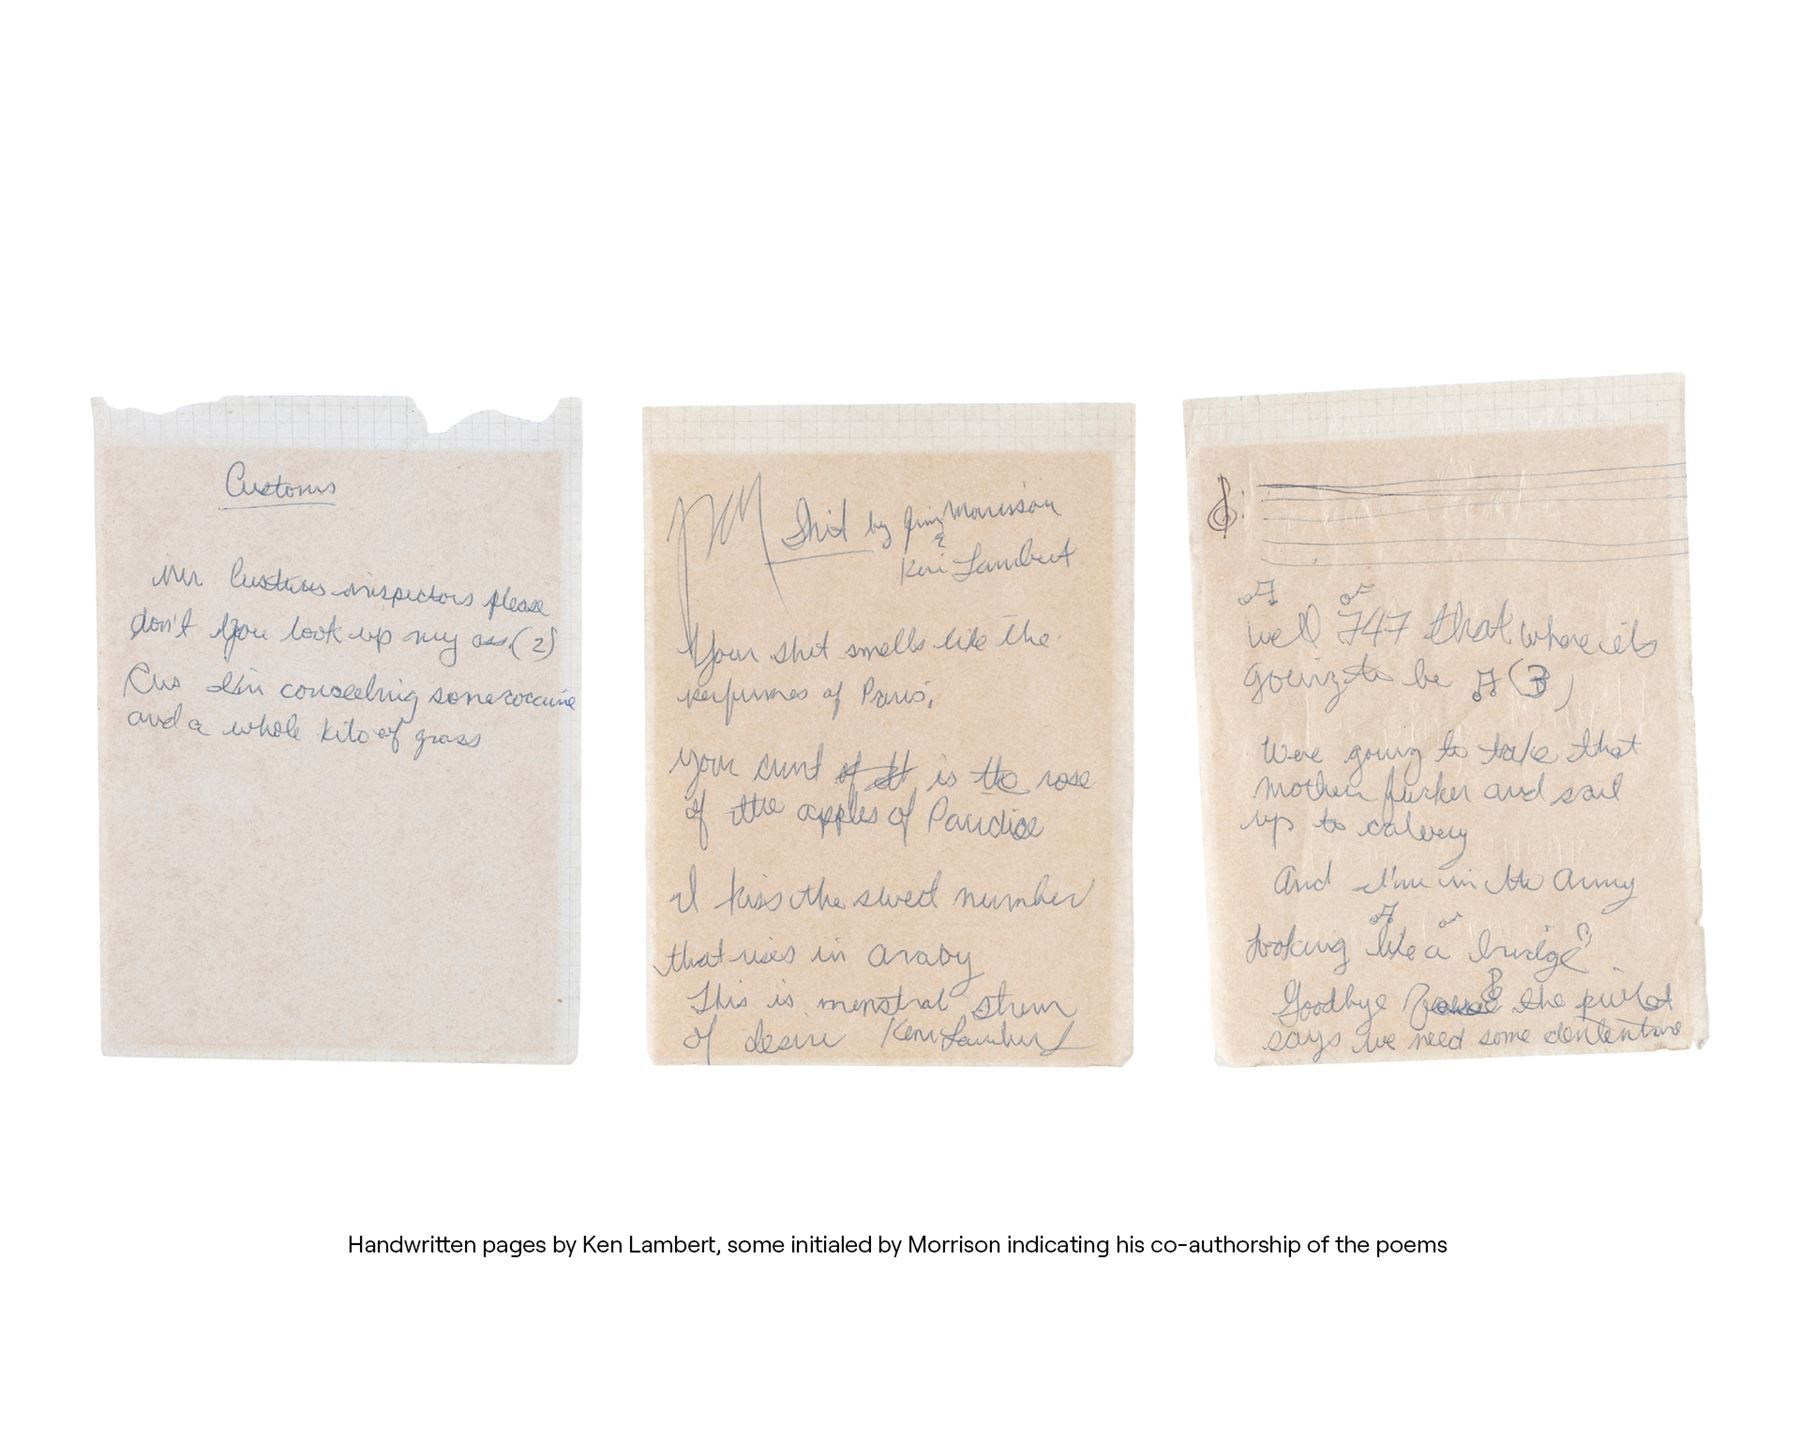 Customs
Mr Customs inspectors please
don't you look up my ass (2)
Cus I'm conceeling some cocaine
and a whole kilo of grass
JM Shit by Jim Morrison
&
Ken Lambert
Your shit smells like the
perfumes of Paris,
your cunt is the rose
of the apples of Paradise
I kiss the sweet number
that rises in araby
This is menstral strum
of desire Ken Lambert
well 747 that where its
going to be (3)
Were going to take that
mother fucker and sail
up to calvery
And I'm in the Army
looking like a bridge
Goodbye the pilot
says we need some
Handwritten pages by Ken Lambert, some initialed by Morrison indicating his co-authorship of the poems